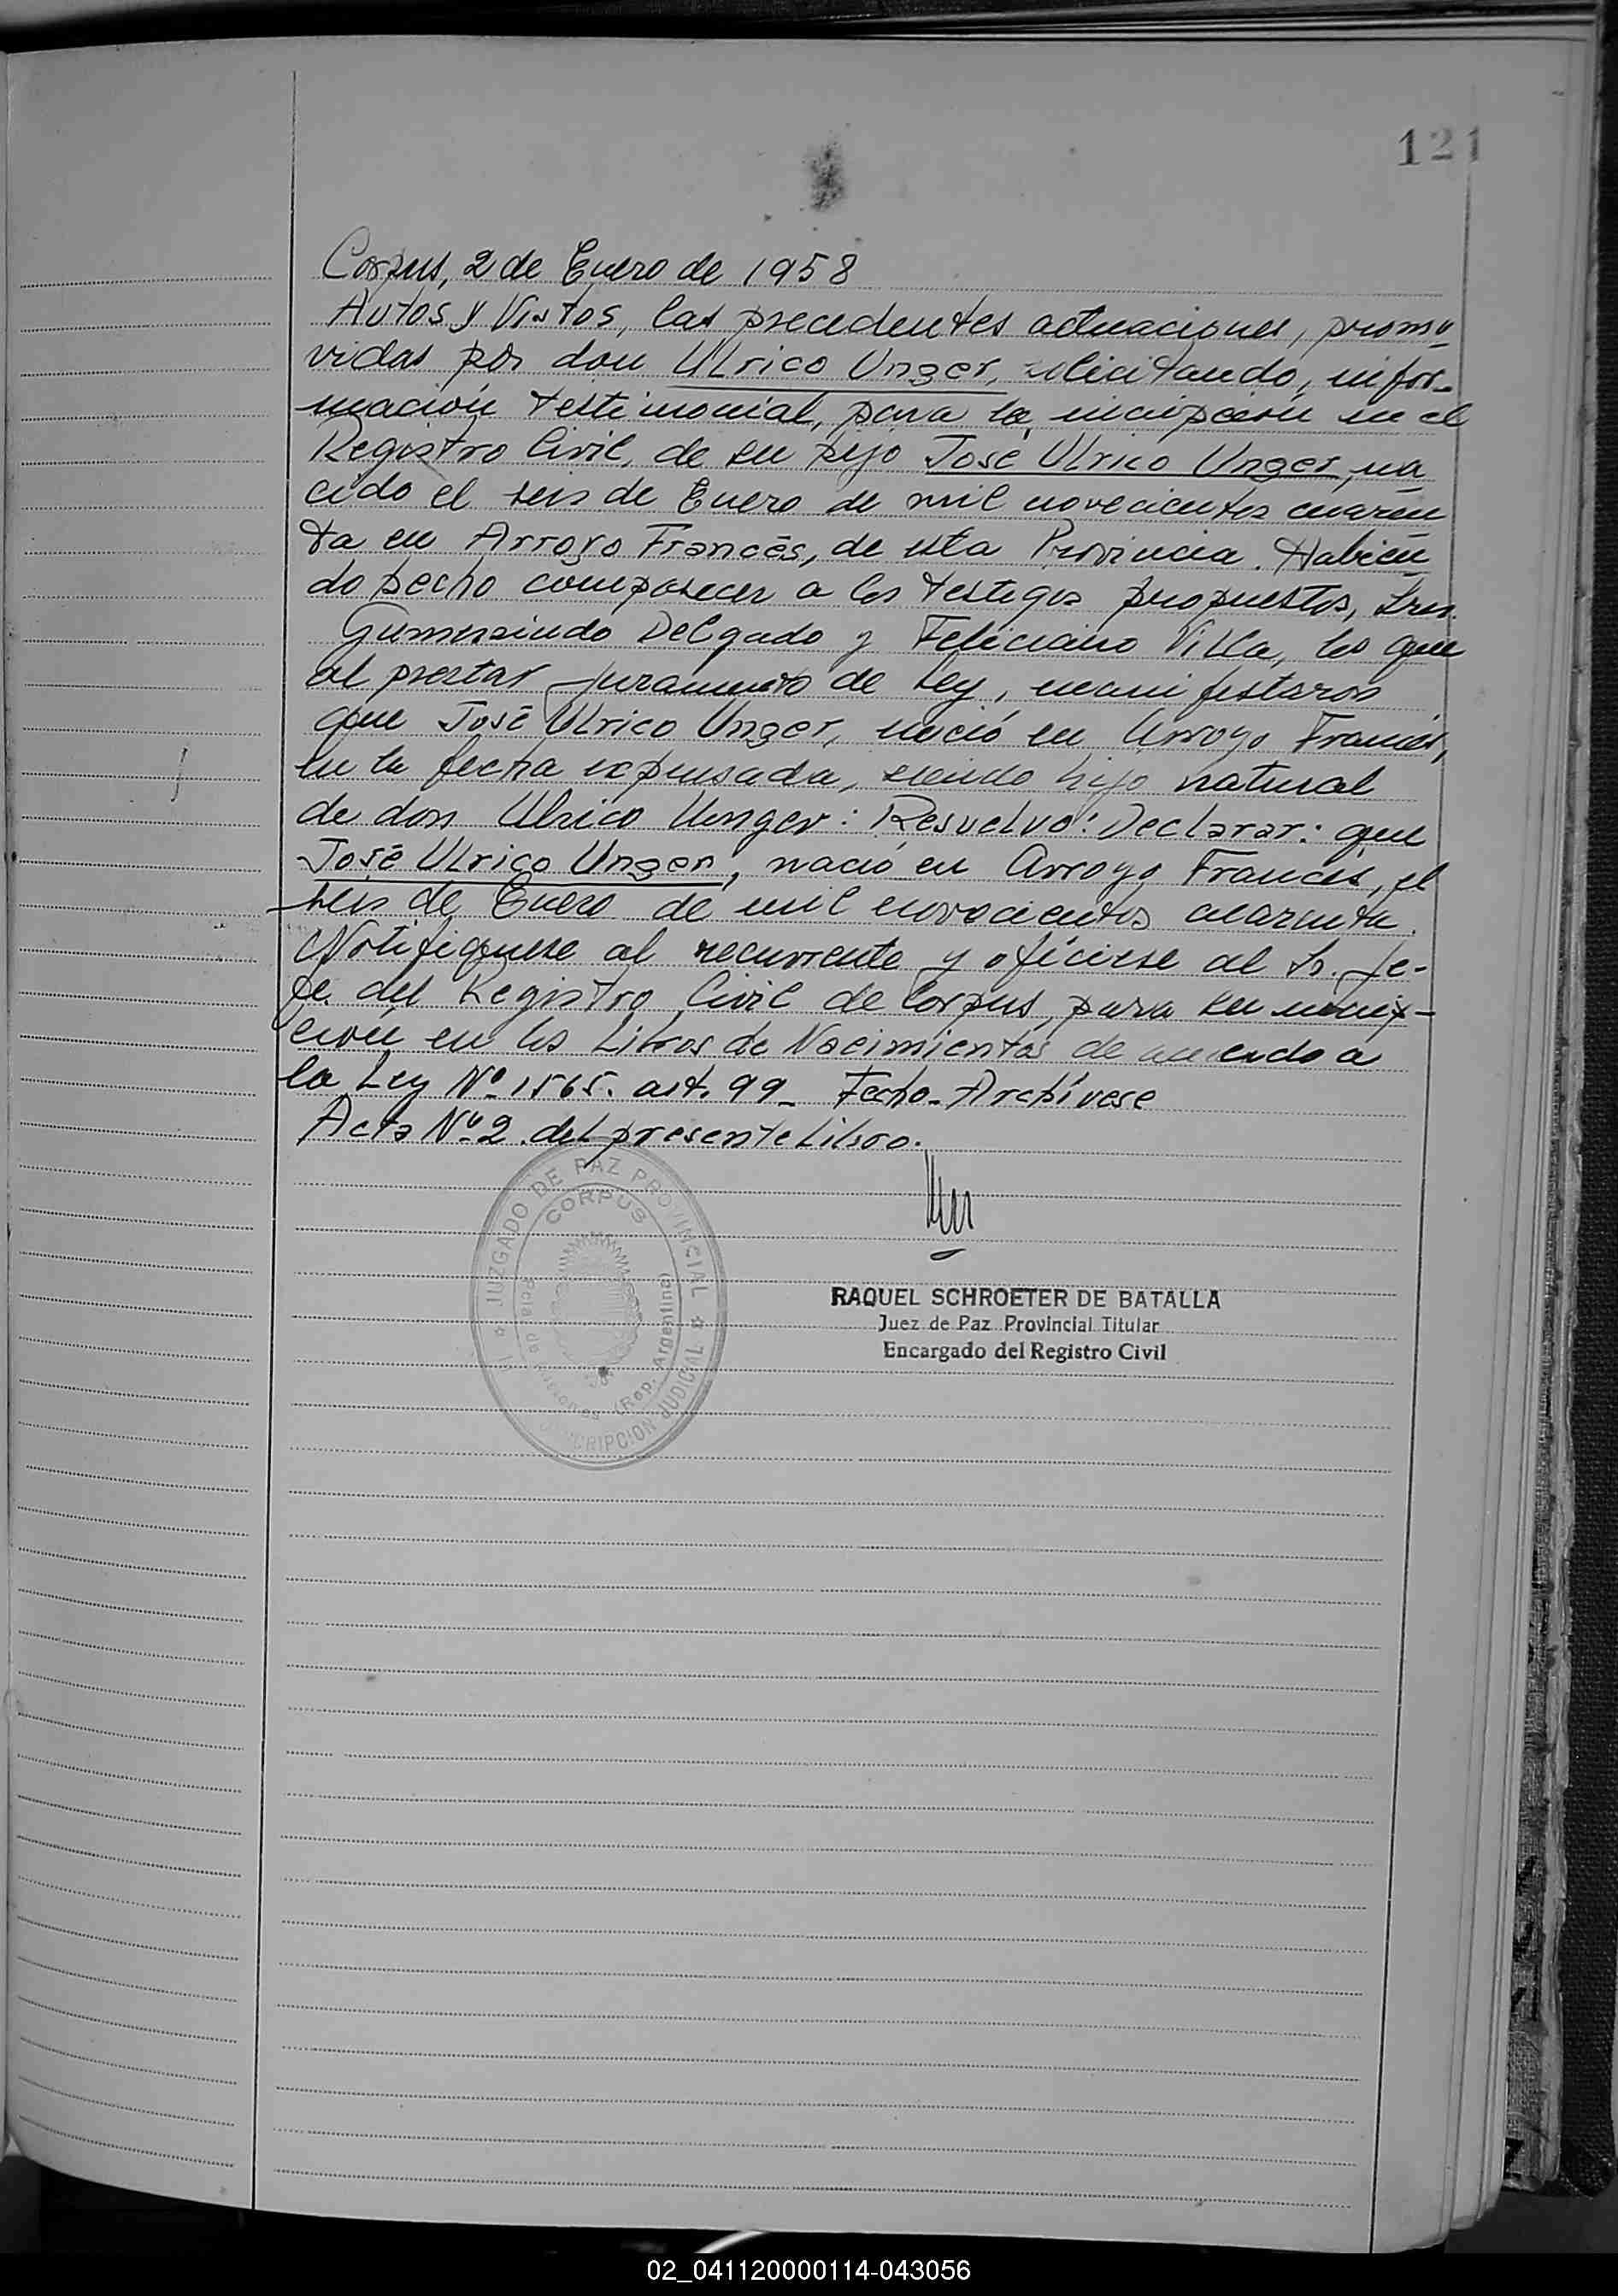 121
Corpus, 2 de Enero de 1958
Autos y Vistos, las precedentes actuaciones, promo
vidas por don Ulrico Unger, solicitando, infor-
mación testimonial, para la inscripción en el
Registro Civil, de su hijo José Ulrico Unger, na
cido el seis de Enero de mil novecientos cuaren
ta en Arroyo Francés, de esta Provincia. Habien
do hecho comparecer a los testigos propuestos, Sres.
Gumersindo Delgado y Feliciano Villa, los que
al prestar juramento de Ley, manifestaron
que José Ulrico Unger, nació en Arroyo Francés,
en la fecha expresada, siendo hijo natural
de don Ulrico Unger: Resuelvo: Declarar: que
José Ulrico Unger, nació en Arroyo Francés, el
seis de Enero de mil novecientos cuarenta.
Notifíquese al recurrente y ofíciese al Sr. Je-
fe del Registro Civil de Corpus, para su inscrip-
ción en los Libros de Nacimientos de acuerdo a
la Ley Nº 1565. art. 99_ Fecho_ Archívese
Acta Nº 2 del presente Libro.
JUZGADO DE PAZ PROVINCIAL
CORPUS
(Rep. Argentina)
JUDICIAL
RAQUEL SCHROETER DE BATALLA
Juez de Paz Provincial Titular
Encargado del Registro Civil
02_041120000114-043056